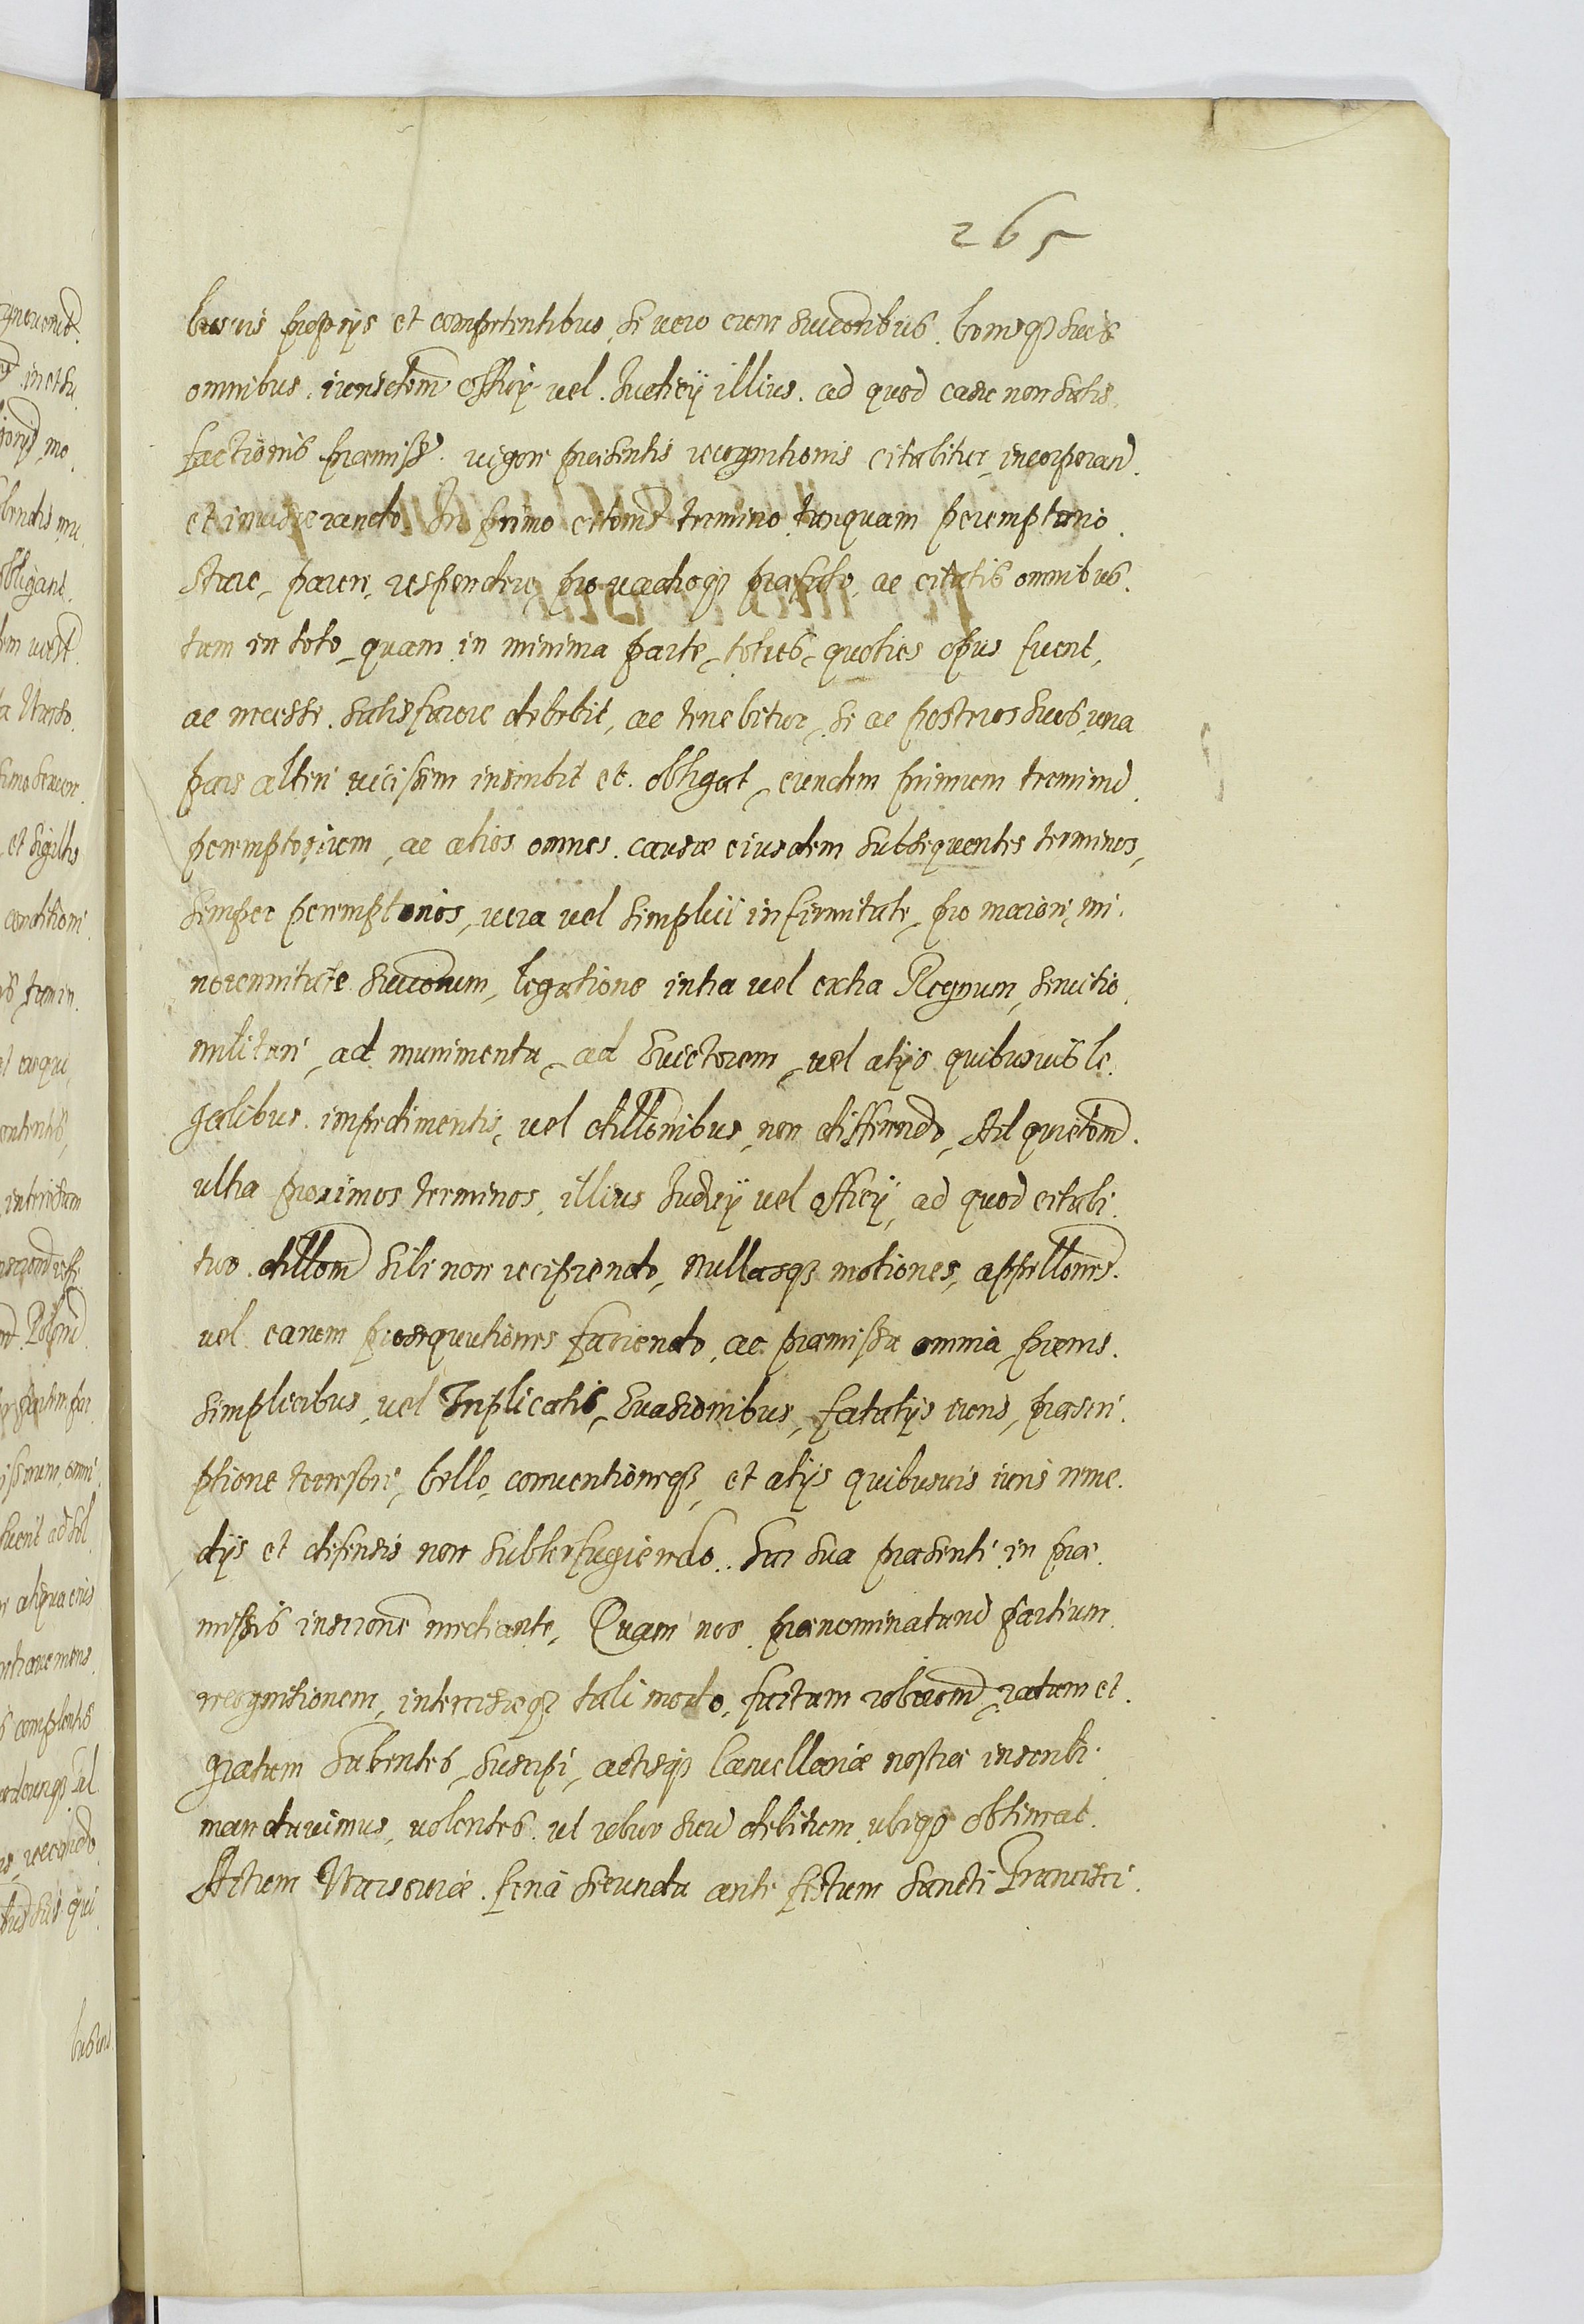 265
busvis proprijs et competentibus, se vero cum succoribus. bonisq3 suis
omnibus. iurisdictom officij vel Iudicij illius. ad quod casu non satis
factionis praemissor. vigore praesentis recognitionis citabitur, incorporand.
et inviscerando. In primo citomis termino tanquam peremptorio.
stare, parere, respondere, pro vadioq3 praefato, ac citatis omnibus.
tam in toto, quam in minima parte, toties, quoties opus fuerit,
ac necesse. satisfacere debebit, ac tenebitur, se ac posteros suos una
pars alteri vicissim inscribit et obligat, eundem primum terminu
peremptorium, ac alios omnes. causae eiusdem subsequentes terminos,
semper peremptorios, vera vel simplici infirmitate, pro maiori, mi.
norennitate succorum, legatione intra vel extra Regnum, servitio
militari, ad munimenta, ad Evictorem, vel alijs quibusvis le.
galibus. impedimentis, vel dillonibus, non differendo, Ad quietom.
ultra proximos terminos. illius Iudicij vel officij, ad quod citabi.
tur. dillom sibi non recipiendo, nullasq3 motiones, appellones.
vel earum prosequutiones faciendo, ac praemissa omnia, paenis.
simplicibus, vel Triplicatis, Evasionibus, fatalijs iuris, praescri.
ptione terrestri, bello, conventioneq3, et alijs quibusvis iuris reme.
dijs et defensis non subterfugiendo. sua praesenti in prae.
missis inscrione mediante, Quam nos praenominatarum partium
recognitionem, intercisieq3 tali modo, factam roboratom, ratam et.
gratam habentes, suscipi, actisq3 Cancellariae nostrae inscribi.
mandavimus, volentes. ut robur suu debitum ubiq3 obtineat.
Actum Warsoviae. feria secunda ante festum Sancti Francisci.